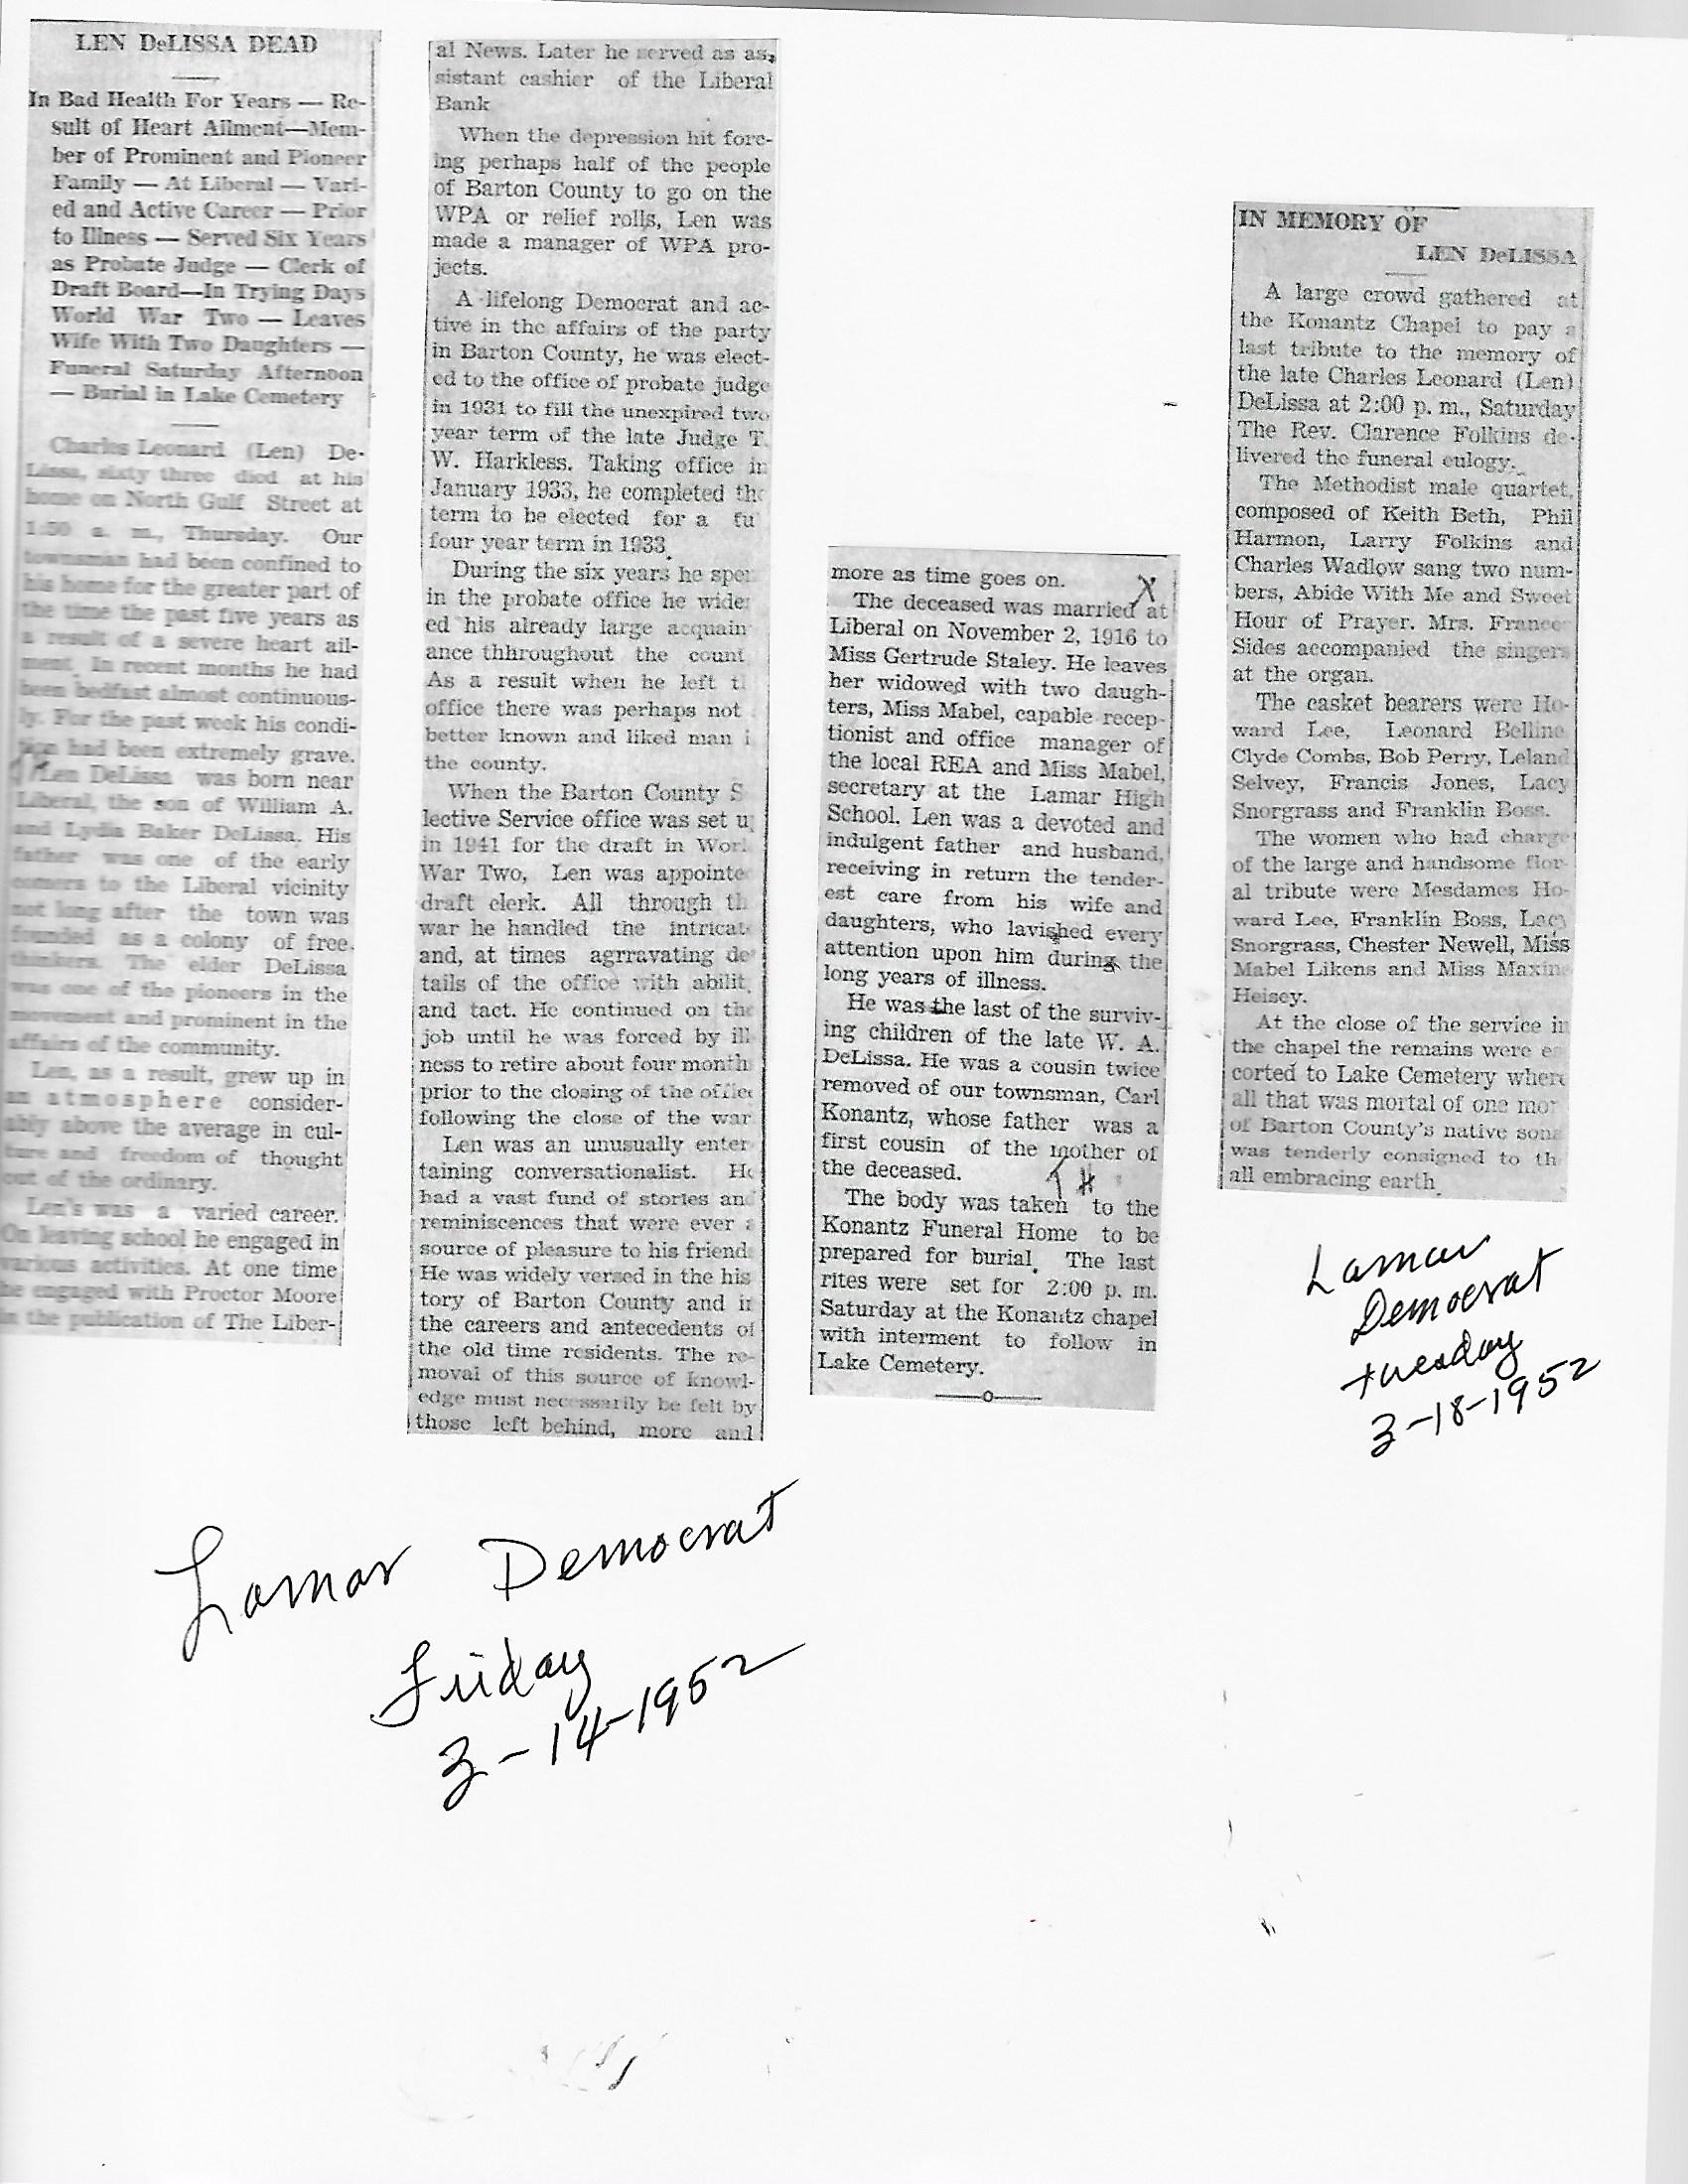 LEN DeLISSA DEAD
In Bad Health For Years — Re-
sult of Heart Ailment—Mem-
ber of Prominent and Pioneer
Family — At Liberal — Vari-
ed and Active Career — Prior
to Illness — Served Six Years
as Probate Judge — Clerk of
Draft Board—In Trying Days
World War Two — Leaves
Wife With Two Daughters —
Funeral Saturday Afternoon
— Burial in Lake Cemetery
Charles Leonard (Len) De-
Lissa, sixty three died at his
home on North Gulf Street at
a. m., Thursday. Our
townsman had been confined to
his home for the greater part of
the time the past five years as
a result of a severe heart ail-
ment. In recent months he had
been bedfast almost continuous-
ly. For the past week his condi-
tion had been extremely grave.
Len DeLissa was born near
Liberal, the son of William A.
and Lydia Baker DeLissa. His
father was one of the early
comers to the Liberal vicinity
not long after the town was
founded as a colony of free
thinkers. The elder DeLissa
was one of the pioneers in the
movement and prominent in the
affairs of the community.
Len, as a result, grew up in
an atmosphere consider-
ably above the average in cul-
ture and freedom of thought
out of the ordinary.
Len's was a varied career.
On leaving school he engaged in
various activities. At one time
he engaged with Proctor Moore
in the publication of The Liber-
al News. Later he served as as-
sistant cashier of the Liberal
Bank
When the depression hit forc-
ing perhaps half of the people
of Barton County to go on the
WPA or relief rolls, Len was
made a manager of WPA pro-
jects.
A lifelong Democrat and ac-
tive in the affairs of the party
in Barton County, he was elect-
ed to the office of probate judge
in 1931 to fill the unexpired two
year term of the late Judge T.
W. Harkless. Taking office in
January 1933, he completed the
term to be elected for a fu
four year term in 1933.
During the six years he spen
in the probate office he widen
ed his already large acquain
ance thhroughout the count
As a result when he left t
office there was perhaps not
better known and liked man i
the county.
When the Barton County S
lective Service office was set u
in 1941 for the draft in Worl
War Two, Len was appointe
draft clerk. All through th
war he handled the intricat
and, at times agrravating de
tails of the office with abilit
and tact. He continued on the
job until he was forced by ill
ness to retire about four month
prior to the closing of the office
following the close of the war
Len was an unusually enter
taining conversationalist. He
had a vast fund of stories an
reminiscences that were ever a
source of pleasure to his friend
He was widely versed in the his
tory of Barton County and in
the careers and antecedents of
the old time residents. The re-
moval of this source of knowl-
edge must necessarily be felt by
those left behind, more and
more as time goes on.
X
The deceased was married at
Liberal on November 2, 1916 to
Miss Gertrude Staley. He leaves
her widowed with two daugh-
ters, Miss Mabel, capable recep-
tionist and office manager of
the local REA and Miss Mabel,
secretary at the Lamar High
School. Len was a devoted and
indulgent father and husband,
receiving in return the tender-
est care from his wife and
daughters, who lavished every
attention upon him during the
long years of illness.
He was the last of the surviv-
ing children of the late W. A.
DeLissa. He was a cousin twice
removed of our townsman, Carl
Konantz, whose father was a
first cousin of the mother of
the deceased.
The body was taken to the
Konantz Funeral Home to be
prepared for burial. The last
rites were set for 2:00 p. m.
Saturday at the Konantz chapel
with interment to follow in
Lake Cemetery.
Lamar Democrat
Friday
3-14-1952
IN MEMORY OF
LEN DeLISSA
A large crowd gathered at
the Konantz Chapel to pay a
last tribute to the memory of
the late Charles Leonard (Len)
DeLissa at 2:00 p. m., Saturday
The Rev. Clarence Folkins de-
livered the funeral eulogy.
The Methodist male quartet,
composed of Keith Beth, Phil
Harmon, Larry Folkins and
Charles Wadlow sang two num-
bers, Abide With Me and Sweet
Hour of Prayer. Mrs. France
Sides accompanied the singers
at the organ.
The casket bearers were Ho-
ward Lee, Leonard Belline
Clyde Combs, Bob Perry, Leland
Selvey, Francis Jones, Lacy
Snorgrass and Franklin Boss.
The women who had charge
of the large and handsome flor-
al tribute were Mesdames Ho-
ward Lee, Franklin Boss, Lacy
Snorgrass, Chester Newell, Miss
Mabel Likens and Miss Maxine
Heisey.
At the close of the service in
the chapel the remains were es
corted to Lake Cemetery where
all that was mortal of one mor
of Barton County's native sons
was tenderly consigned to th
all embracing earth.
Lamar
Democrat
tuesday
3-18-1952